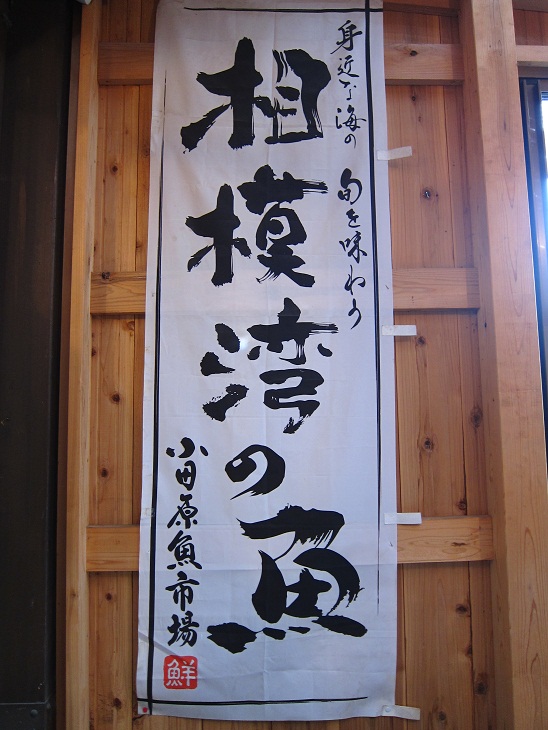 身近な海の 旬を味わう
相模湾の魚
小田原魚市場
鮮